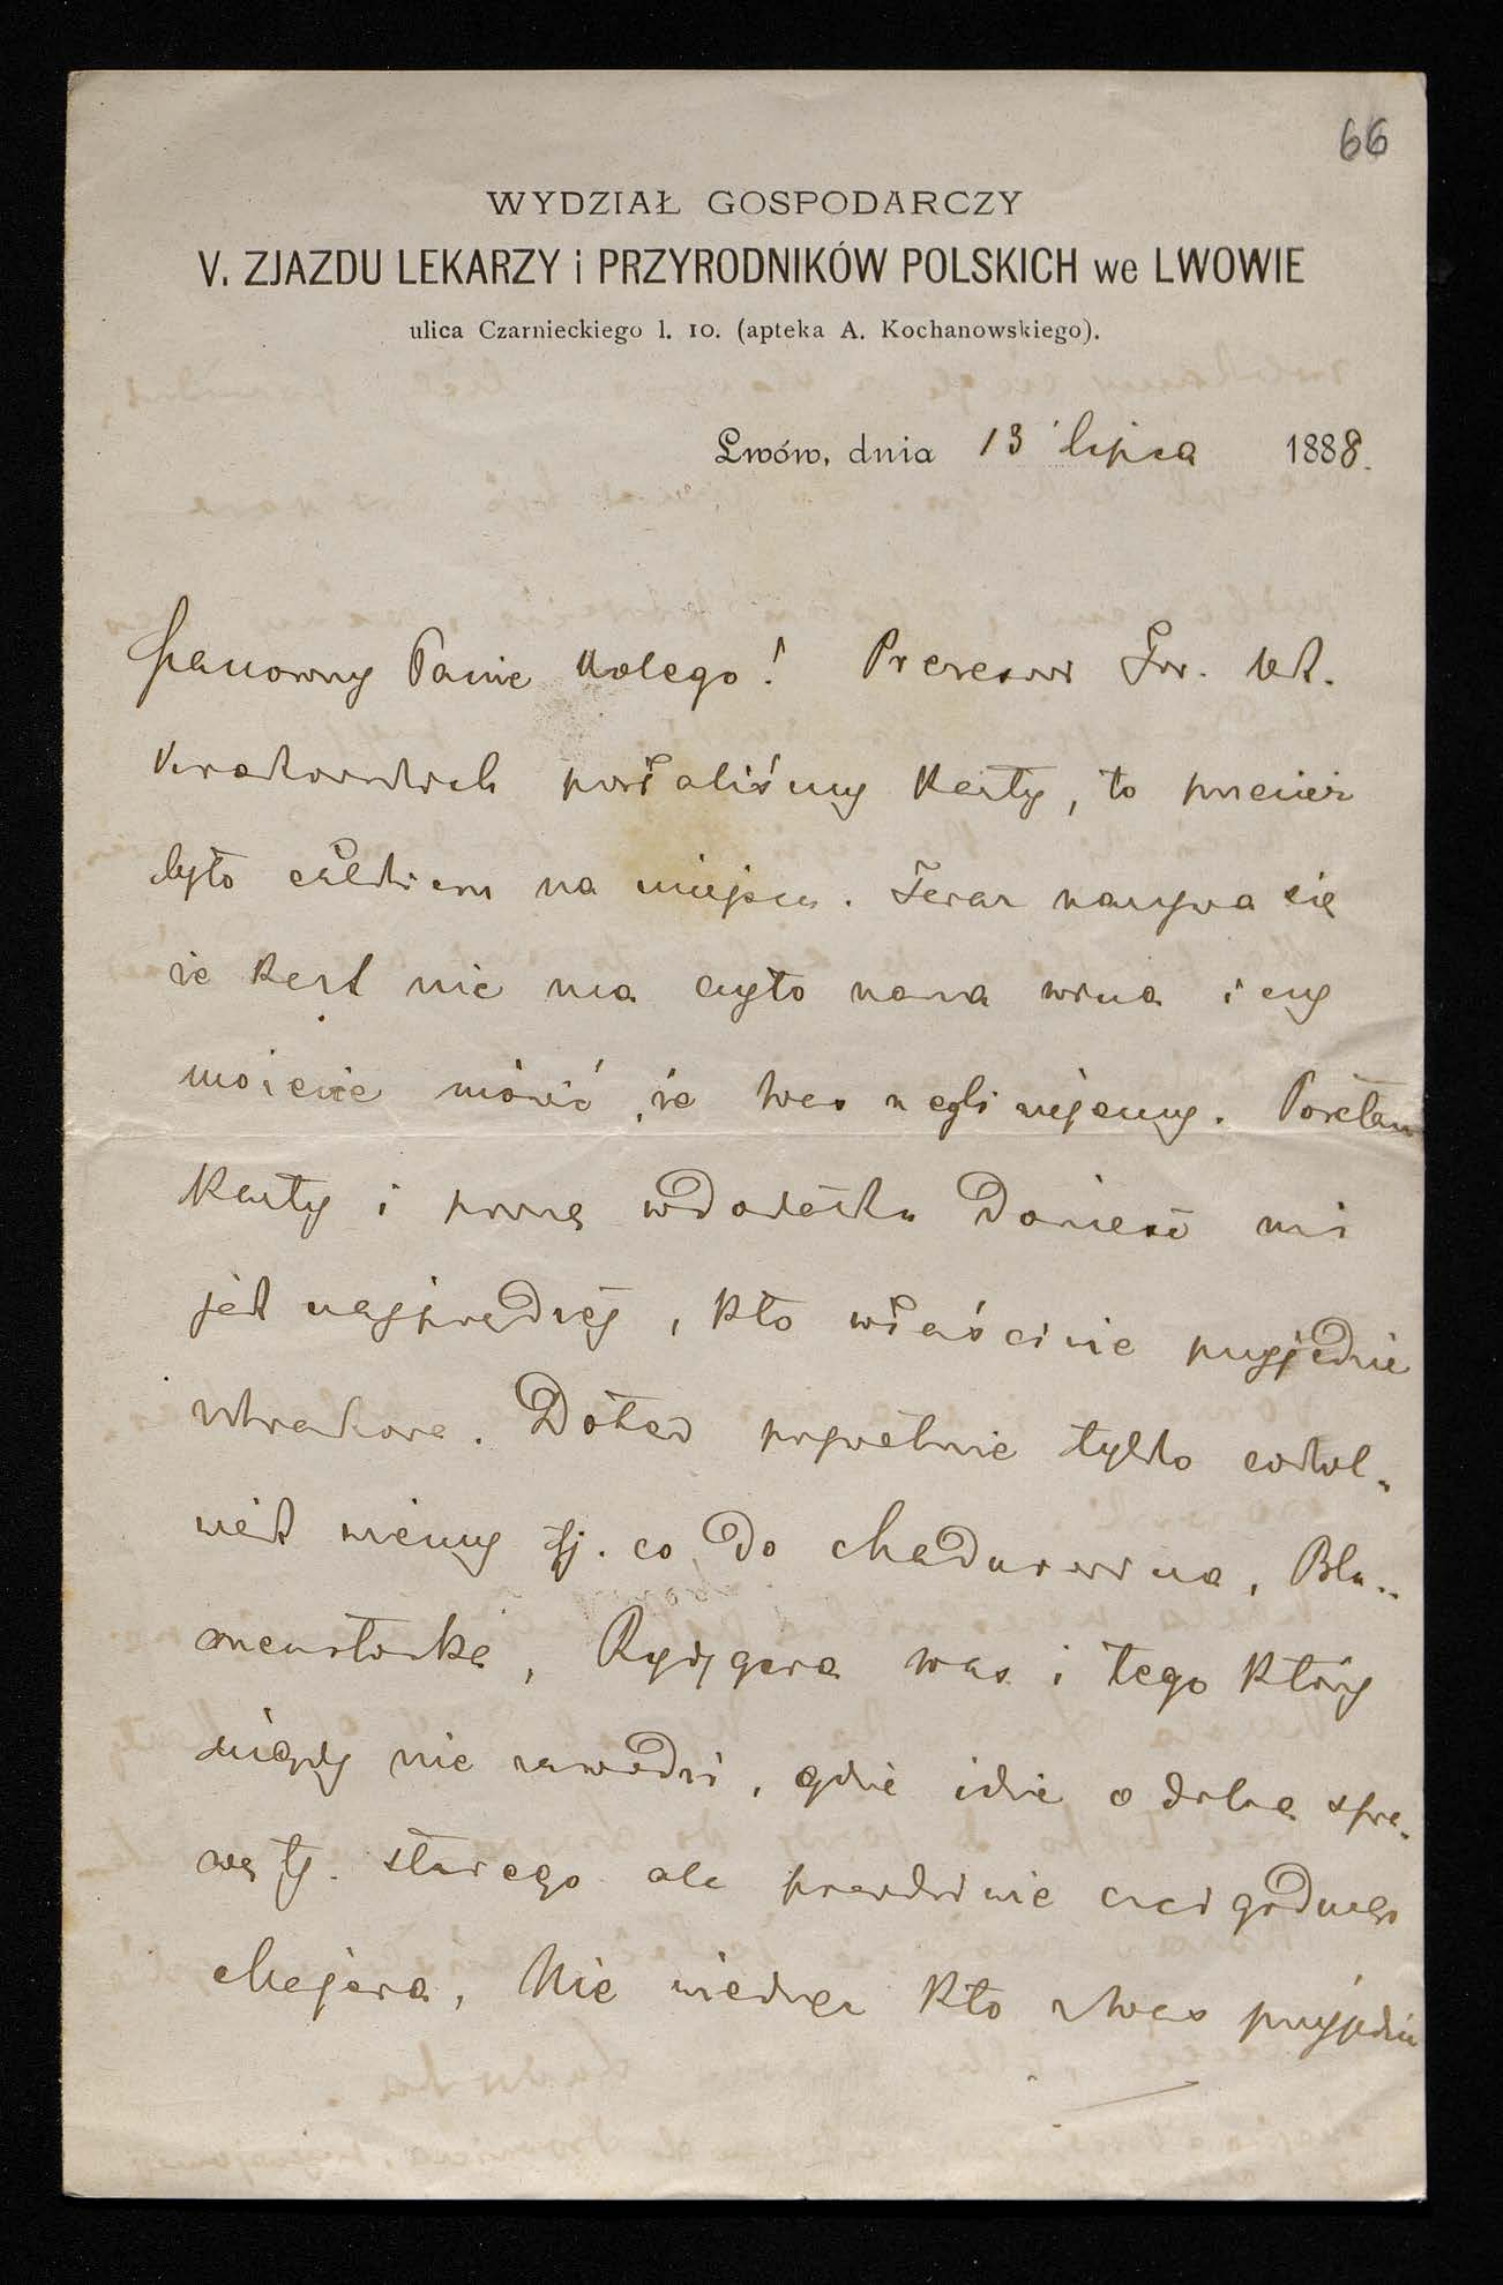 66
WYDZIAŁ GOSPODARCZY
V. ZJAZDU LEKARZY i PRZYRODNIKÓW POLSKICH we LWOWIE
ulica Czarnieckiego l. 10. (apteka A. Kochanowskiego).
Lwów, dnia 13 lipca 1888.
Szanowny Panie Kolego! Prezesowi Tow. lek.
Krakowskich posłaliśmy karty, to przecież
było całkiem na miejscu. Teraz nazywa się
że kart nie ma czyto nasza wina i czy
możecie mówić, że Was negliżujemy. Posełam
karty i proszę w dodatku donieść mi
jak najprędzej, kto właściwie przyjedzie
z Krakowa. Dotąd prywatnie tylko cokol-
wiek wiemy tj. co do Madurowicza, Blu-
menstocka, Rydygiera was i tego który
nigdy nie zawodzi, gdzie idzie o dobrą spra-
wę tj. starego ale prawdziwie czcigodnego
Majera. Nie wiedząc kto z Was przyjedzie